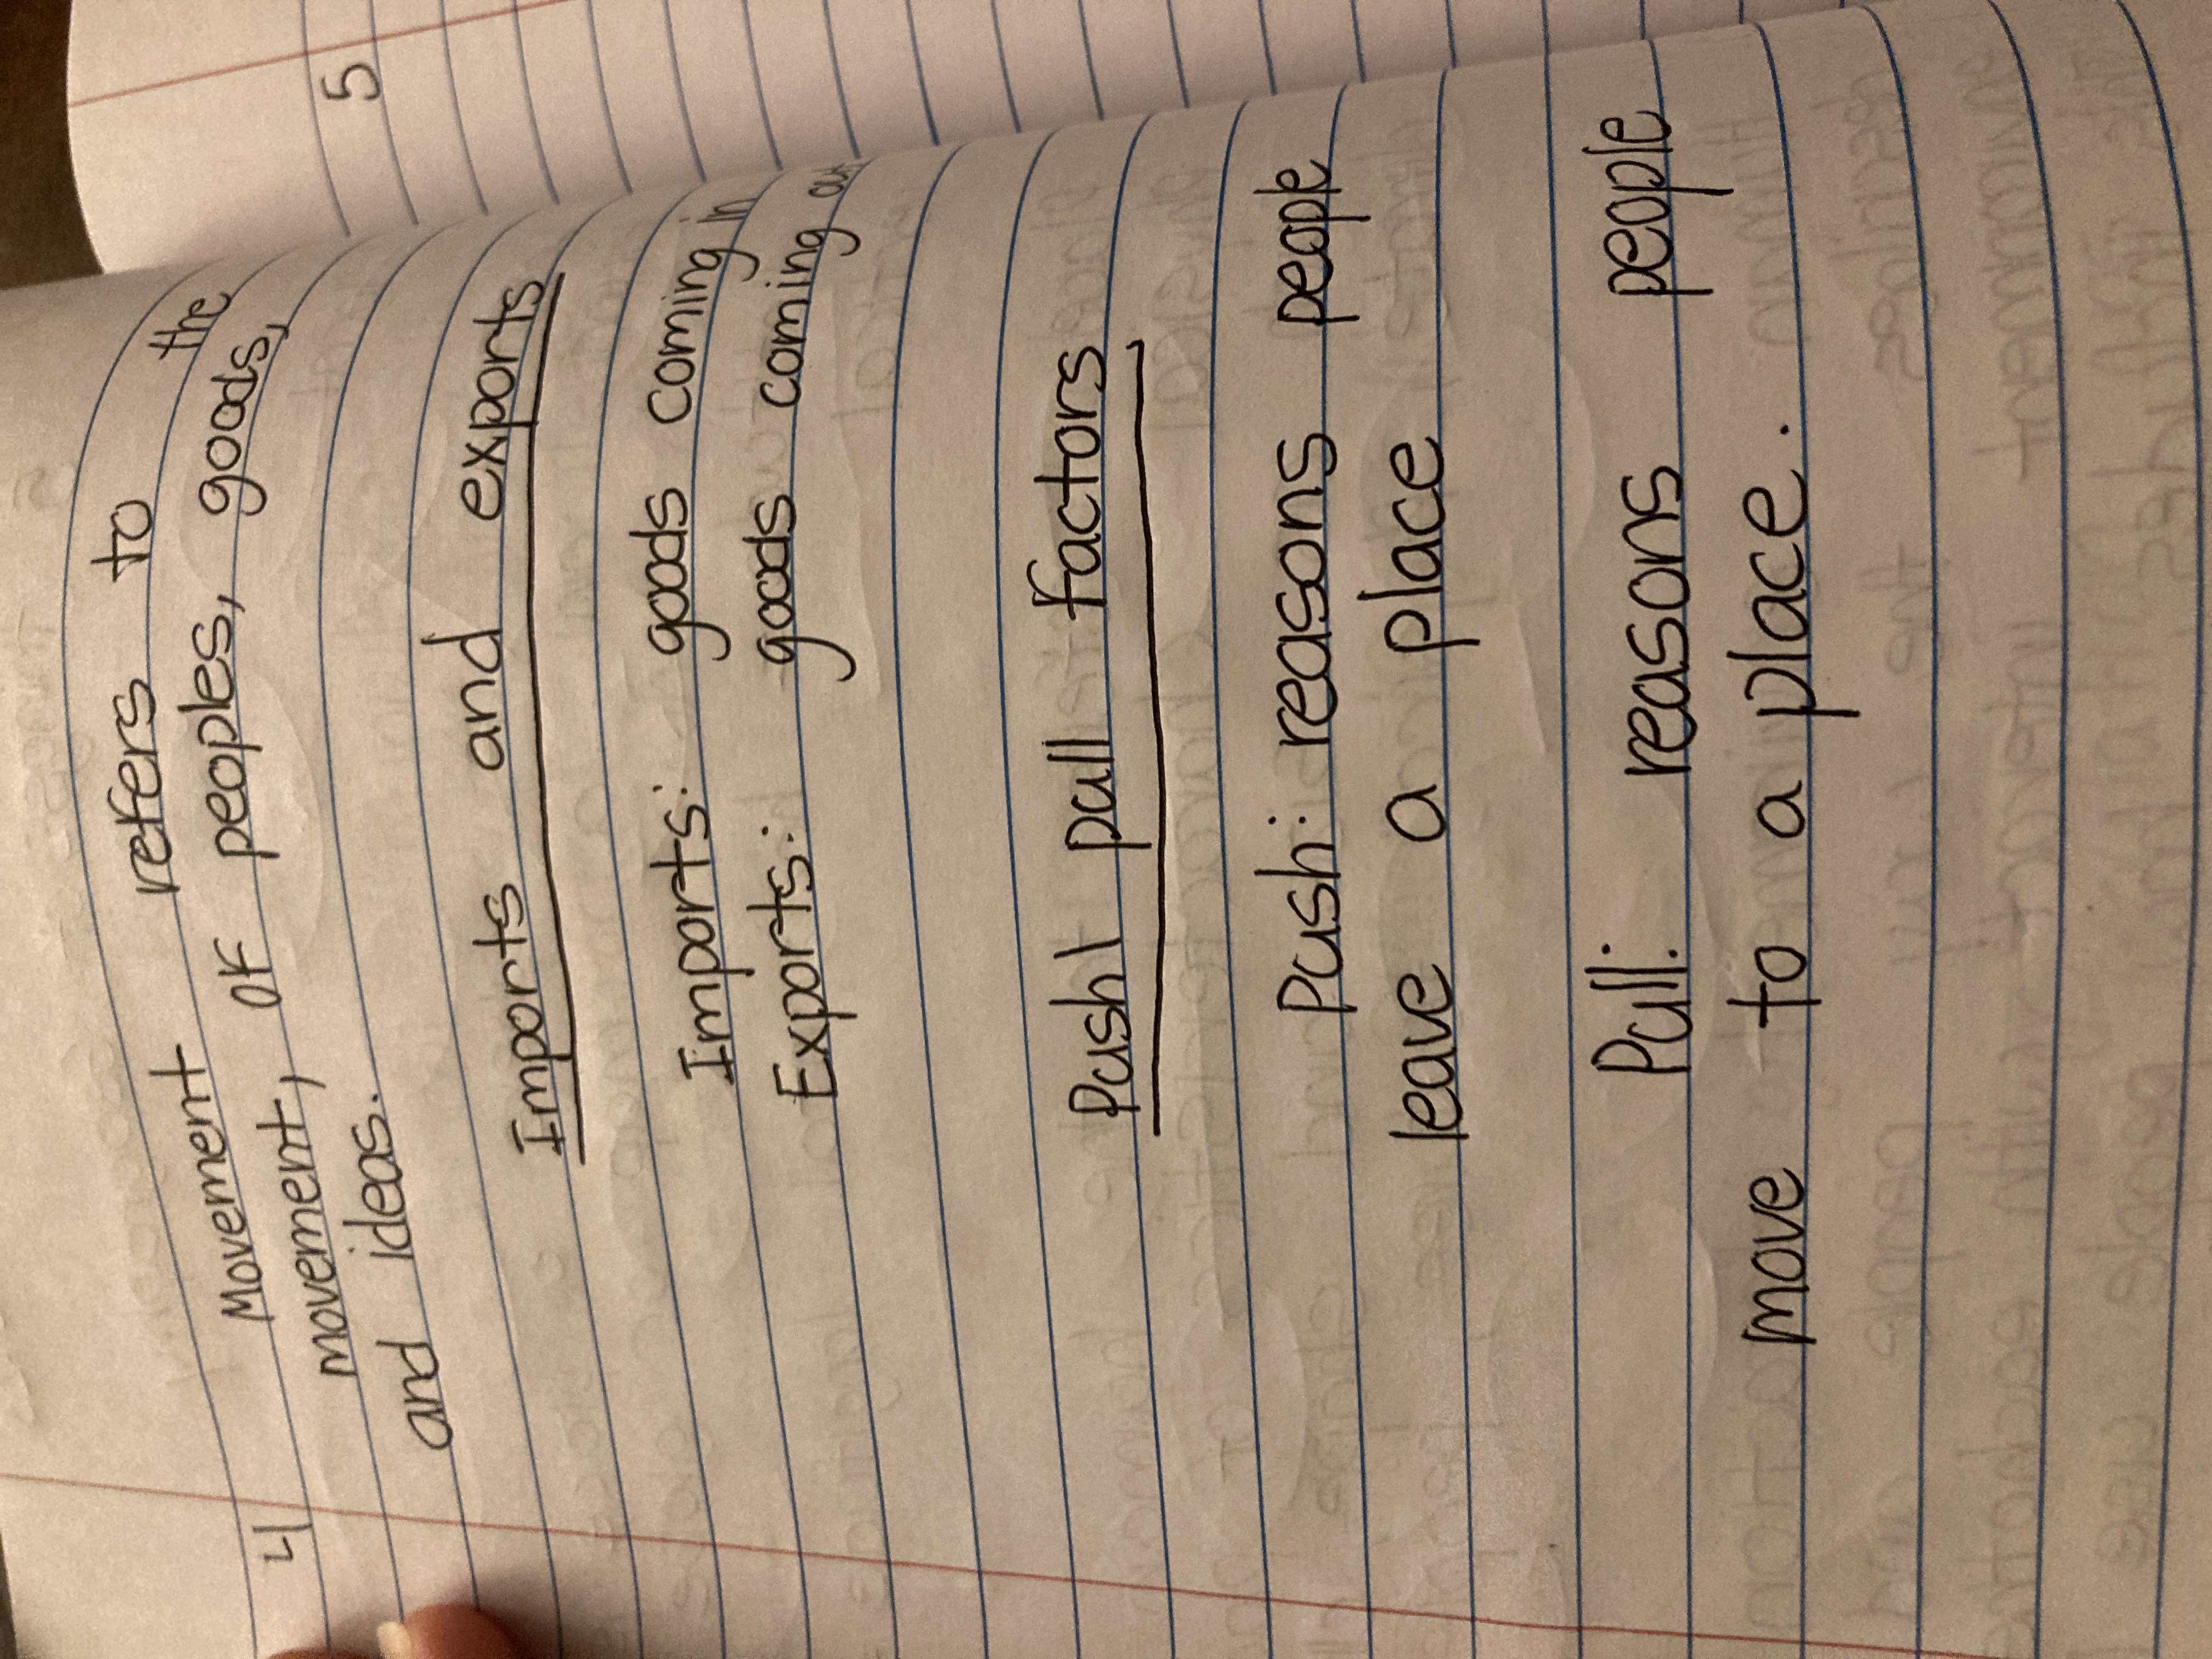 4
Movement refers to the
movement, of peoples, goods,
and ideas.
Imports and exports
Imports: goods coming in
Exports: goods coming out
Push| pull factors
Push: reasons people
leave a place
Pull: reasons people
move to a place.
5